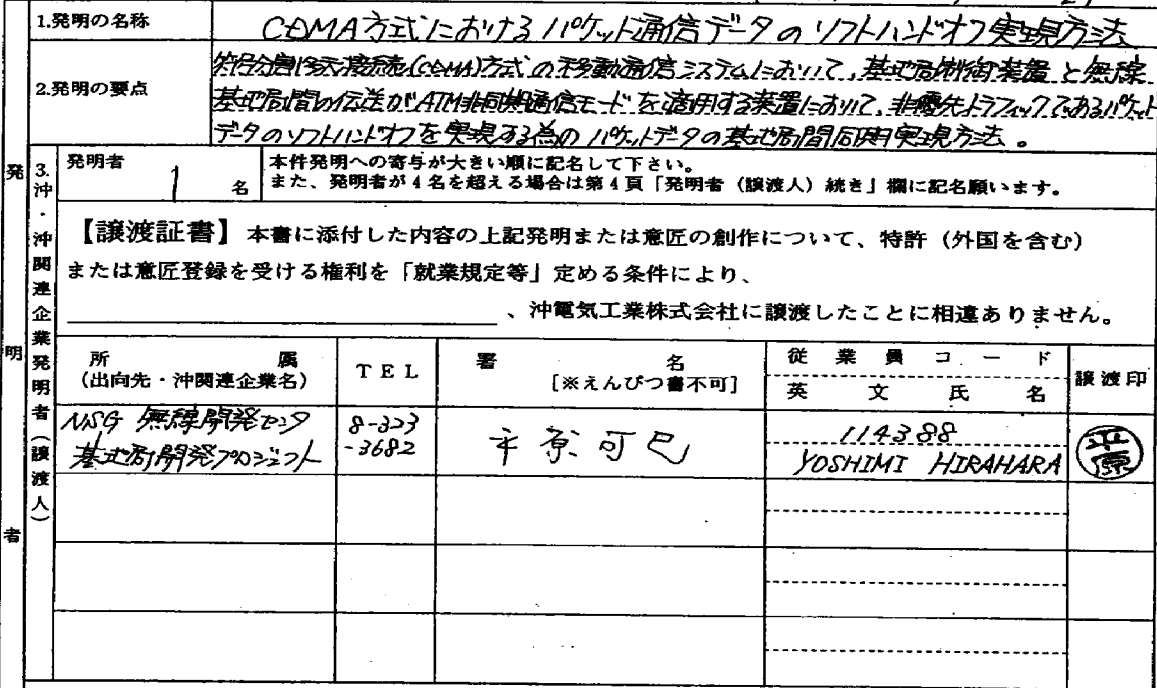 1.発明の名称
CDMA方式におけるパケット通信データのソフトハンドオフ実現方法
2.発明の要点
符号分割多元接続(CDMA)方式の移動通信システムにおいて、基地局制御装置と無線
基地局間の伝送がATM非同期通信モードを適用する装置において、非優先トラフィックであるパケット
データのソフトハンドオフを実現する為のパケットデータの基地局間同期実現方法。
発明者
3.沖・沖関連企業発明者(譲渡人)
発明者
1名
本件発明への寄与が大きい順に記名して下さい。
また、発明者が4名を超える場合は第4頁「発明者(譲渡人)続き」欄に記名願います。
【譲渡証書】本書に添付した内容の上記発明または意匠の創作について、特許(外国を含む)
または意匠登録を受ける権利を「就業規定等」定める条件により、
、沖電気工業株式会社に譲渡したことに相違ありません。
所属
(出向先・沖関連企業名)
TEL
署名
[※えんぴつ書不可]
従業員コード
英文氏名
譲渡印
NSG 無線開発センタ
基地局開発プロジェクト
8-323
-3682
平原可巳
114388
YOSHIMI HIRAHARA
平原